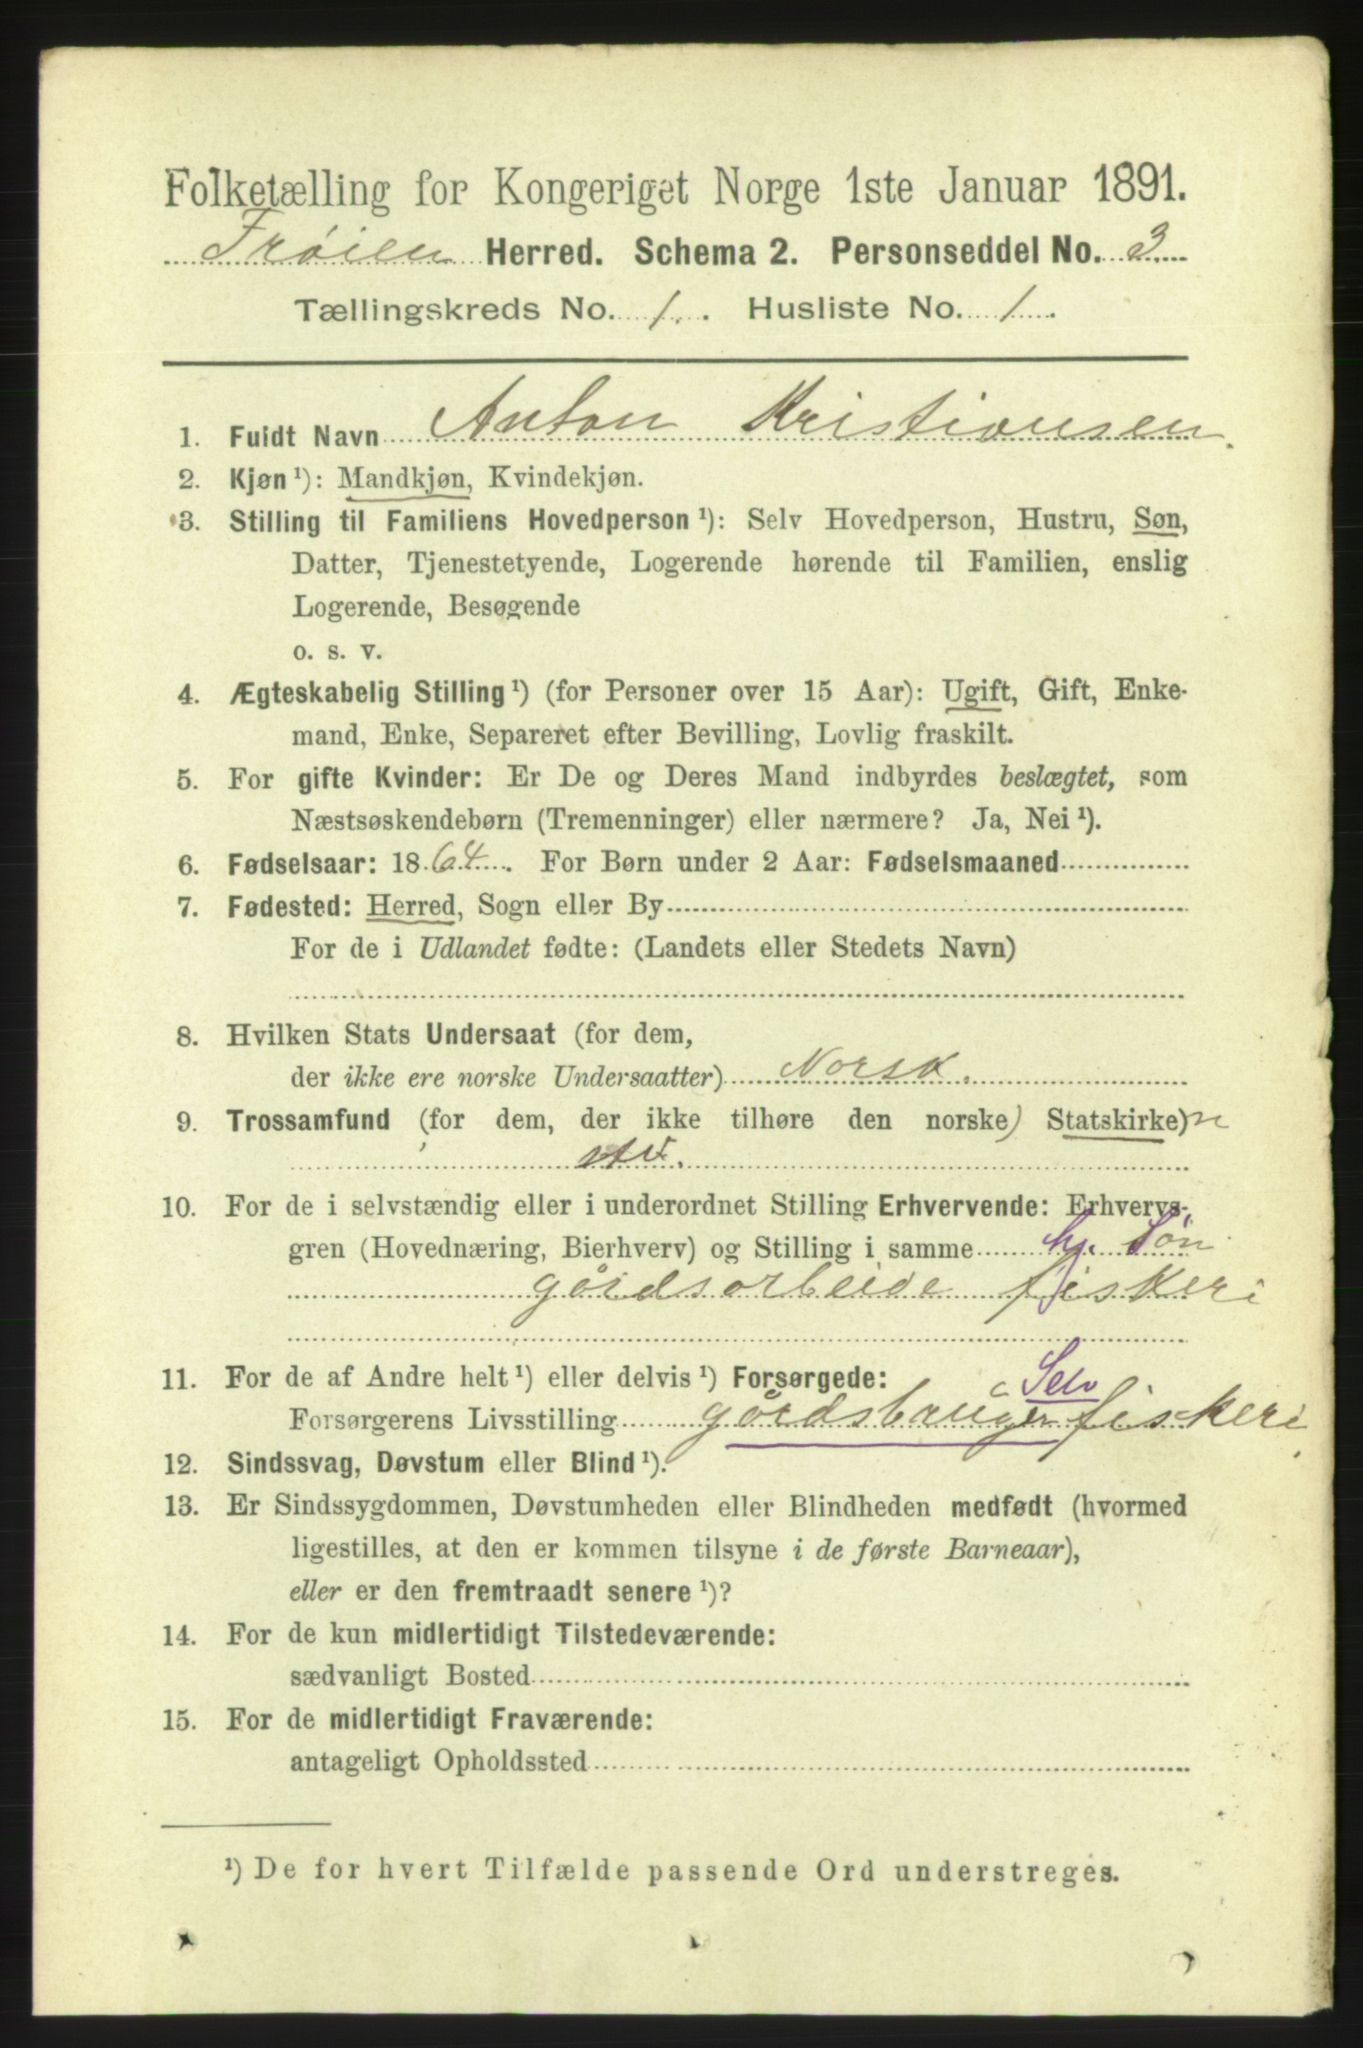 Folketælling for Kongeriget Norge 1ste Januar 1891.
Frøien Herred. Schema 2. Personseddel No. 3
Tællingskreds No. 1. Husliste No. 1.
1. Fuldt Navn Anton Kristiansen.
2. Kjøn ¹): Mandkjøn, Kvindekjøn.
3. Stilling til Familiens Hovedperson ¹): Selv Hovedperson, Hustru, Søn,
Datter, Tjenestetyende, Logerende hørende til Familien, enslig
Logerende, Besøgende
o. s. v.
4. Ægteskabelig Stilling ¹) (for Personer over 15 Aar): Ugift, Gift, Enke-
mand, Enke, Separeret efter Bevilling, Lovlig fraskilt.
5. For gifte Kvinder: Er De og Deres Mand indbyrdes beslægtet, som
Næstsøskendebørn (Tremenninger) eller nærmere? Ja, Nei ¹).
6. Fødselsaar: 1864. For Børn under 2 Aar: Fødselsmaaned
7. Fødested: Herred, Sogn eller By
For de i Udlandet fødte: (Landets eller Stedets Navn)
8. Hvilken Stats Undersaat (for dem,
der ikke ere norske Undersaatter) Norsk.
9. Trossamfund (for dem, der ikke tilhøre den norske) Statskirke)n
10. For de i selvstændig eller i underordnet Stilling Erhvervende: Erhvervs-
gren (Hovednæring, Bierhverv) og Stilling i samme hj. Søn
gårdsarbeide fiskeri
11. For de af Andre helt ¹) eller delvis ¹) Forsørgede: Selv
Forsørgerens Livsstilling gårdsbruger fiskeri
12. Sindssvag, Døvstum eller Blind ¹).
13. Er Sindssygdommen, Døvstumheden eller Blindheden medfødt (hvormed
ligestilles, at den er kommen tilsyne i de første Barneaar),
eller er den fremtraadt senere ¹)?
14. For de kun midlertidigt Tilstedeværende:
sædvanligt Bosted
15. For de midlertidigt Fraværende:
antageligt Opholdssted
¹) De for hvert Tilfælde passende Ord understreges.